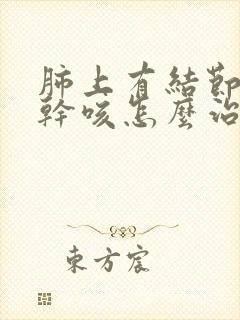 肺上有結節
幹咳怎麼治
東方宸